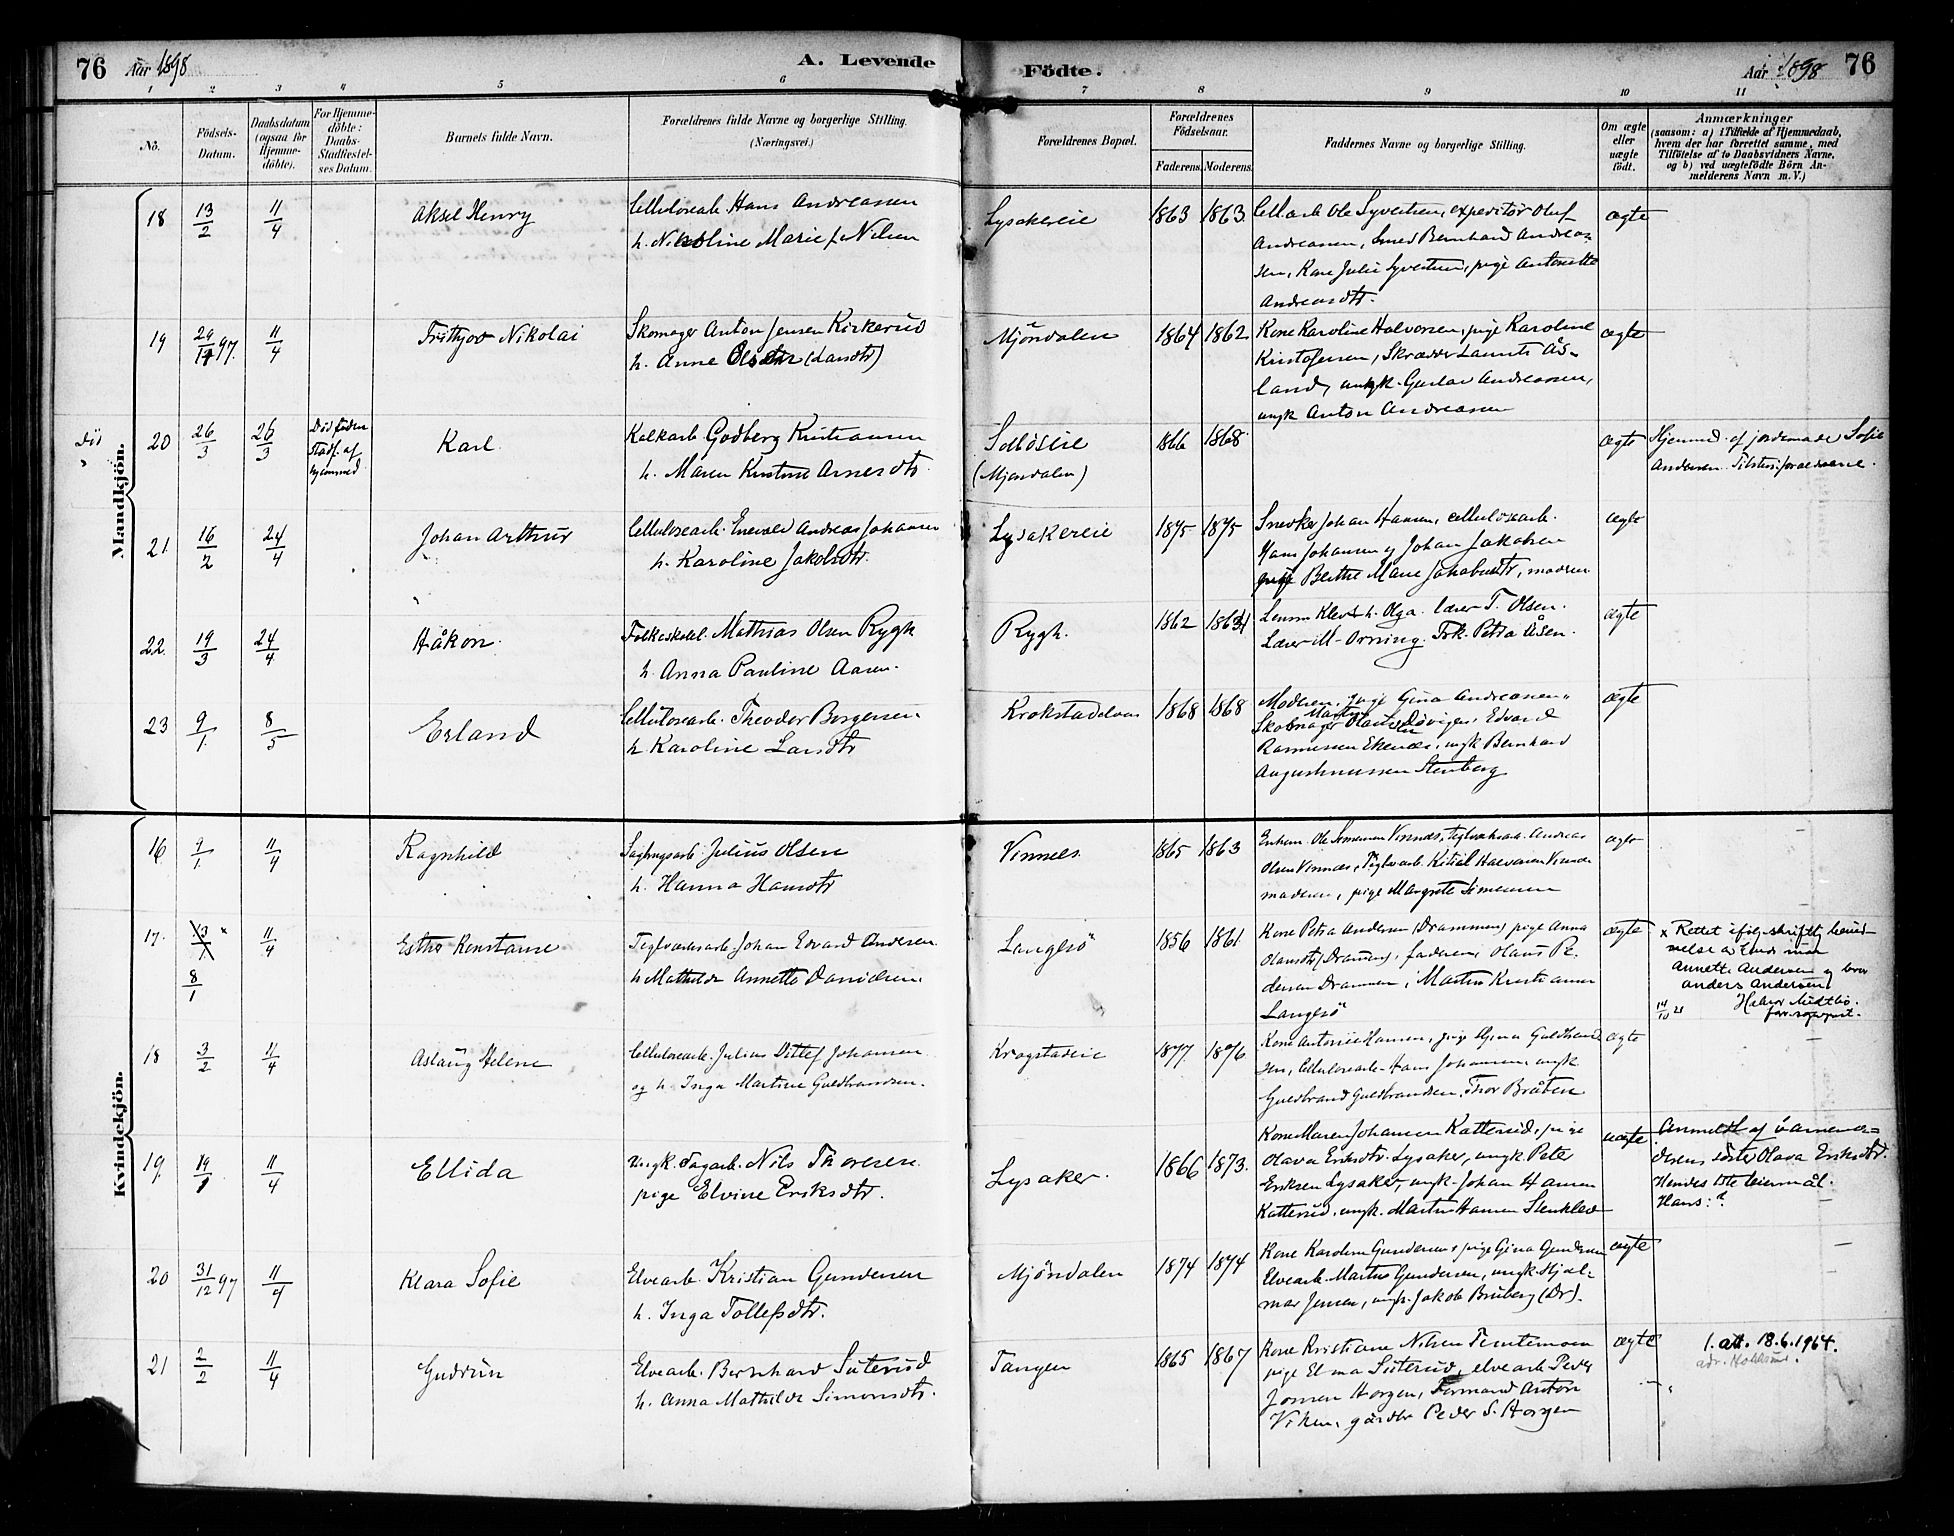 76 Aar 1898 A. Levende Födte. Aar 1898 76
1 2 3 4 5 6 7 8 9 10 11
No.
Födsels-Datum.
Daabsdatum (ogsaa for Hjemmedöbte).
For Hjemmedöbte: Daabs-Stadfæstelses Datum.
Barnets fulde Navn.
Forældrenes fulde Navne og borgerlige Stilling.
(Næringsvei.)
Forældrenes Bopæl.
Forældrenes Födselsaar.
Faderens. Moderens.
Faddernes Navne og borgerlige Stilling.
Om ægte eller uægte födt.
Anmærkninger
(saasom: a) i Tilfælde af Hjemmedaab, hvem der har forrettet samme, med Tilföielse af to Daabsvidners Navne, og b) ved uægtefödte Börn Anmelderens Navn m. V.)
Mandkjön.
18 13/2 11/4 Aksel Henry
Cellulosearb. Hans Andreasen
h. Nikoline Marie f. Nilsen
Lysakereie 1863 1863
Cellarb Ole Syvertsen, expeditör Oluf
Andreasen, Smed Bernhard Andrea-
sen, Kone Julie Syvertsen, pige Antonette
Andreasdtr.
ægte
19 29/12 97. 11/4 Frithjov Nikolai
Skomager Anton Jensen Kirkerud
h. Anne (Larsdtr)
Mjöndalen 1864 1862
Kone Karoline Halvorsen, pige Karoline
Kristofersen, Skrædder Laurits Ås-
land, ungk. Gustav Andreasen,
ungk Anton Andreasen
ægte
död
20 26/3 26/3 Död föden Stadf. af hjemmed
Karl
Kalkarb. Godberg Kristiansen
h. Maren Kristine Arnesdtr.
Solbergeie
(Mjöndalen)
1866 1868
ægte
Hjemmed. af jordemoder Sofie
Andersen. Tilsteds. forældrene.
21. 16/2 24/4 Johan Arthur
Cellulosearb. Enevald Andreas Johansen
h. Karoline Jakobsdtr.
Lysakereie 1875 1875
Snedker Johan Hansen, cellulosearb.
Hans Johansen og Johan Jakobsen
pige Berthe Marie Jakobsdtr, moderen
ægte
22. 19/3 24/4 Håkon.
Folkeskolel. Mathias Olsen Rygh
h. Anna Pauline Aasen.
Rygh. 1862 1864
Lensm Klev h. Olga. lærer T. Olsen.
Lærer M. Orning. Frk. Petra Åsen.
ægte
23 9/1. 8/5 Erland
Cellulosearb. Theodor Borgersen
h. Karoline Larsdtr
Krokstadelven 1868 1868
Moderen, pige Gina Andreasen
Skomager Martin
Rasmussen Ekenæs, ungk Bernhard
Augustinussen Stenberg
ægte
Kvindekjön.
16 9/1. 11/4 Ragnhild
Sagbrugsarb. Julius Olsen
h. Hanna Hansdtr
Vinnes. 1865 1863
Enkem. Ole Simensen Vinnæs, Teglverksarb. Andreas
Olsen Vinnæs, Teglverb. Kittil Halvorsen Vinnæs
moderen, pige Margrete Simensen
ægte
17. 13/1. 11/4 Esther Konstanse
8/1
Teglværksarb. Johan Edvard Andersen
h. Mathilde Annette Danielsen
Langesö 1856 1861
Kone Petra Andersen (Drammen) pige Anna
Olausdtr (Drammen), faderen, Olaus Pe-
dersen Drammen, Martin Kristiansen
Langesö
ægte
x Rettet ifölg. skriftlig bevid-
nelse av
Annette Andersen og bror
Anders Andersen.
14/10 21
for sogneprest.
18 3/2 11/4 Aslaug Helene
Cellulosearb. Julius Ditlef Johansen
og h. Inga Martine Guldbrandsen.
Krogstadeie 1877 1876
Kone Antonie Hansen, pige Gina Guldbrand-
sen, Cellulosearb. Hans Johansen, ungk.
Guldbrand Guldbrandsen, Thor Bråten
ægte
19. 19/1 11/4 Ellida
Ungk. Sagarb. Nils Thoresen.
pige Elvine Eriksdtr.
Lysaker. 1866 1873.
Kone Maren Johansen Katterud, pige
Olava Eriksdtr. Lysaker, ungk. Peter
Eriksen Lysaker, ungk. Johan Hansen
Katterud, ungk. Martin Hansen Stenklev
uægte
Anmeldt af barnemo-
derens söster Olava Eriksdtr.
Hendes 1ste leiermål.
Hans: ?
20 31/12 97 11/4 Klara Sofie
Elvearb. Kristian Gundersen
h. Inga Tollefsdtr.
Mjöndalen 1874 1874
Kone Karoline Gundersen, pige Gina Gundersen
Elvearb. Martin Gundersen, ungk. Hjal-
mar Jensen, ungk. Jakob Bruberg (Dr).
ægte
21 2/2 11/4 Gudrun
Elvearb. Bernhard Suterud
h. Anna Mathilde Simonsdtr.
Tangen 1865 1867
Kone Kristiane Nilsen
pige Elma Suterud, elvearb Peder
Jonsen Horgen, Formand Anton
Viken, gårdbr Peder S. Horgen
ægte
1. att. 18.6.1964.